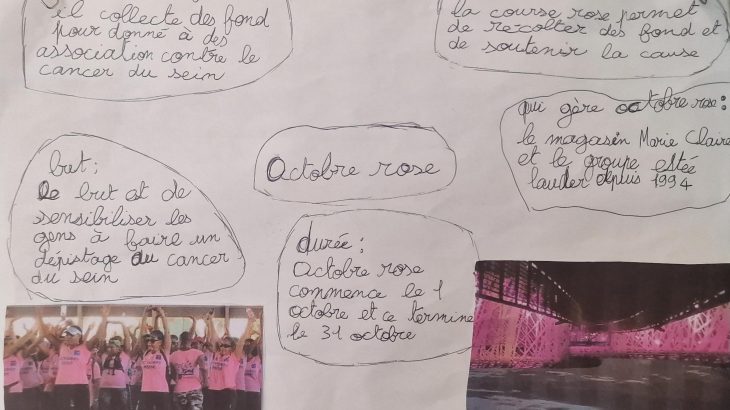 il collecte des fond
pour donné à des
association contre le
cancer du sein
la course rose permet
de recolter des fond et
de soutenir la cause
qui gère octobre rose:
le magasin Marie Claire
et le groupe estée
lauder depuis 1994
Octobre rose
but:
Le but est de
sensibiliser les
gens à faire un
dépistage du cancer
du sein
durée:
Octobre rose
commence le 1
octobre et ce termine
le 31 octobre